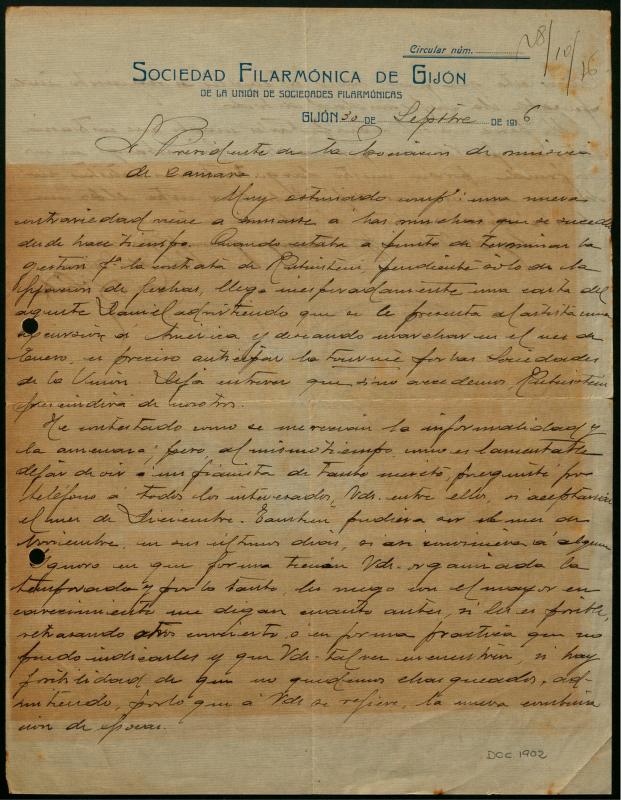 Circular núm.
28/10/16
SOCIEDAD FILARMÓNICA DE GIJÓN
DE LA UNIÓN DE SOCIEDADES FILARMÓNICAS
GIJÓN 30 DE Sepbre DE 1916
Sr. Presidente de la Asociación de música
de camara
Muy estimado compº: una nueva
contrariedad viene a sumarse á las muchas que se suceden
desde hace tiempo. Cuando estaba a punto de terminar la
gestión pª la contrata de Rubinstein, pendiente sólo de la
fijación de fechas, llega inesperadamente una carta del
agente Daniel advirtiendo que se le presenta al artista una
excursión á América y deseando marchar en el mes de
Enero, es preciso anticipar la tournée por las Sociedades
de la Unión. Deja entrever que si no accedemos Rubinstein
prescindirá de nosotros.
He contestado como se merecian la informalidad y
la amenaza pero, al mismo tiempo, como es lamentable
dejar de oir á un pianista de tanto mérito, pregunté por
teléfono a todos los interesados, Vds. entre ellos, si aceptarían
el mes de Diciembre. Tambien pudiera ser el mes de
Noviembre, en sus últimos dias, si asi conviniera á alguno
Ignoro en que forma tienen Vds. organizada la
temporada y por lo tanto, les ruego con el mayor en
carecimiento me digan cuanto antes, si les es posible,
retrasando otro concierto, o en forma practica que no
puedo indicarles y que Vds. tal vez encuentren, si hay
posibilidad de que no quedemos chasqueados, ad-
mitiendo, por lo que á Vds. se refiere, la nueva combina
cion de epocas.
DOC 1902